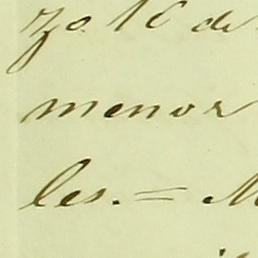 zo 16 de
menor
les. = M